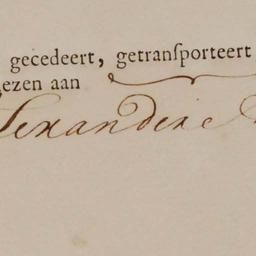 gecedeert, getransporteert
ezen aan
lexandere